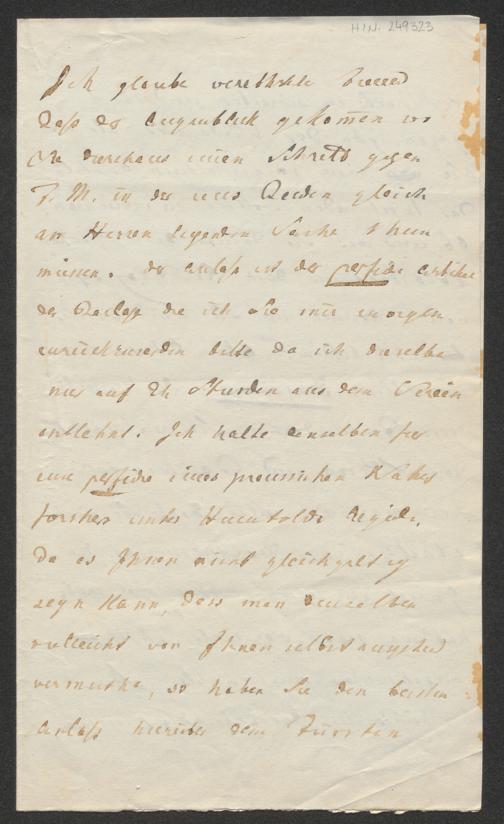 H.I.N. 249323
Ich glaube verehrter Freund
daß der Augenblick gekommen wo
Sie durchaus einen Schritt gegen
F. M. in der uns Beiden gleich
am Herzen liegenden Sache thun
müssen. Der Anlaß ist der perfide Artikel
der Beilage die ich Sie mir morgen
zurückzusenden bitte da ich dieselbe
nur auf 24 Stunden aus dem Verein
entlehnt. Ich halte denselben für
eine perfidie eines preussischen Natur
forschers unter Humboldts Aegide.
Da es Ihnen nicht gleichgeltig
seyn kann, dass man denselben
vielleicht von Ihnen selbst
vermuthe, so haben Sie den besten
Anlaß hierüber dem Fürsten